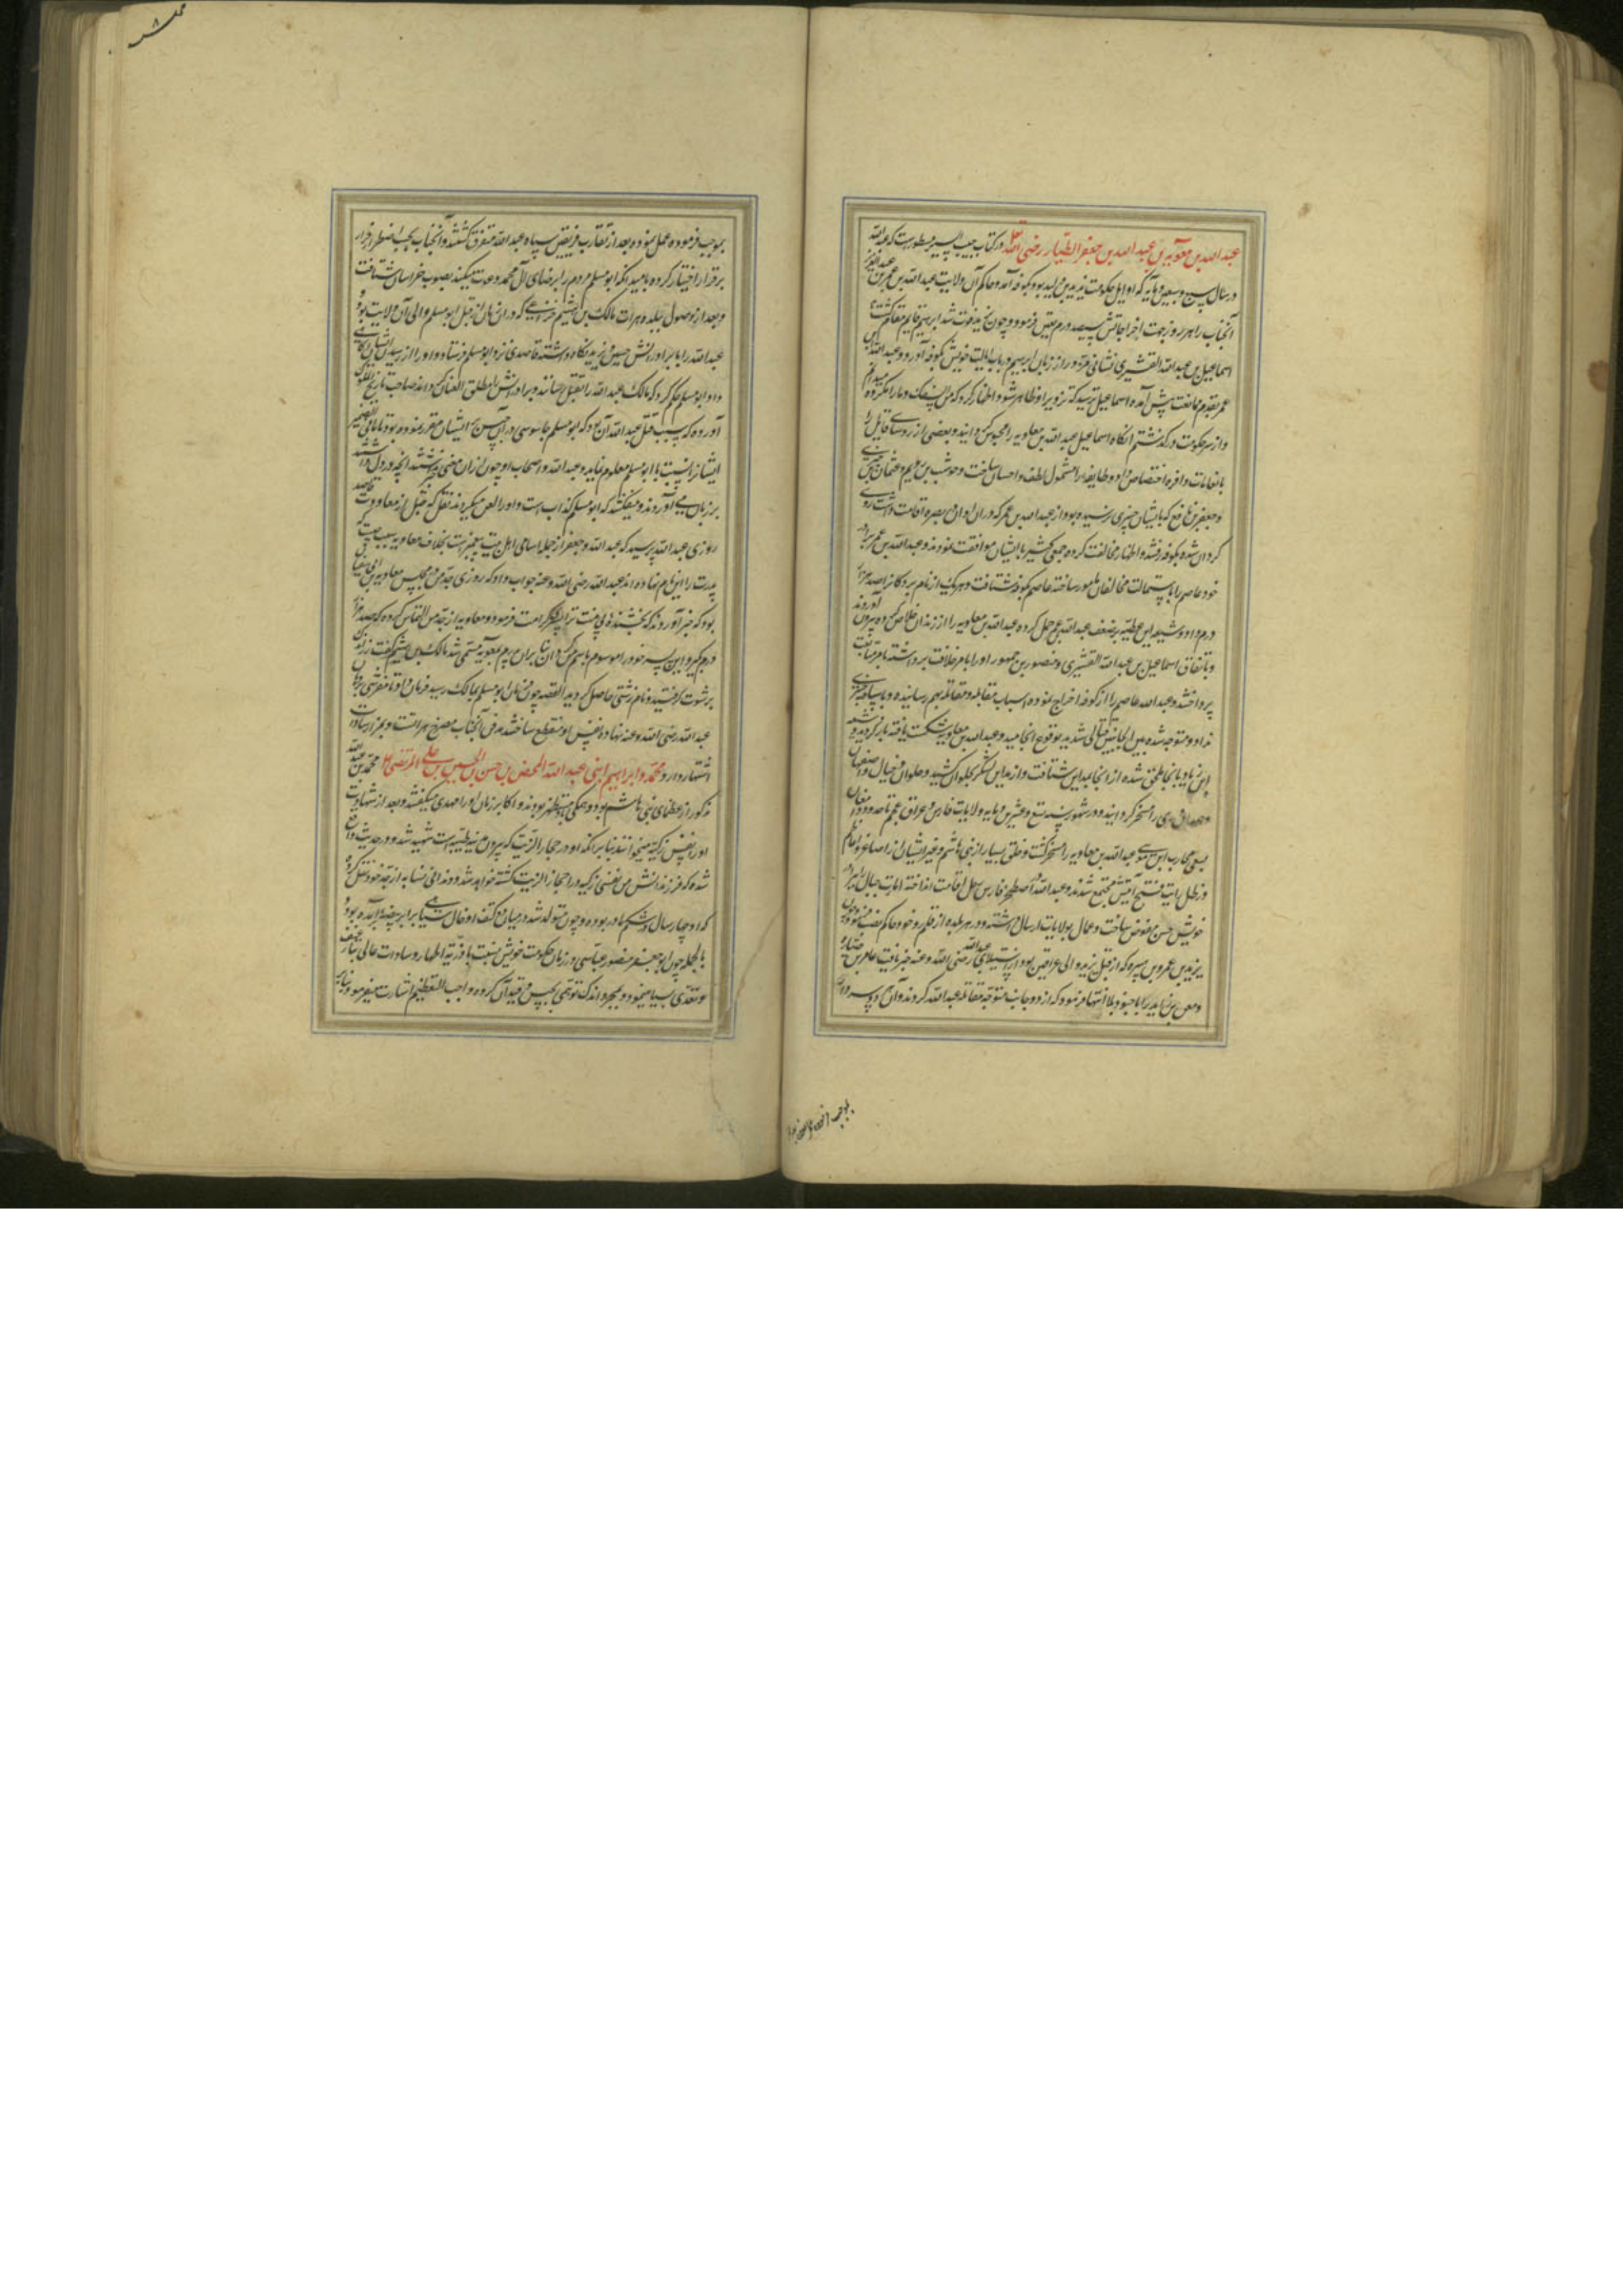 عبد الله بن معویه بن عبد الله بن جعفر الطیار رضی الله در کتاب حبیب السیر مسطورست که عبد الله
در سال سبع و عشرین و مایه که اوایل حکومت یزید بن ولید بود بکوفه آمد و حاکم آن ولایت عبد الله بن عمر بن عبد العزیز
آنجناب را هر روز جهت اخراجاتش سیصد درم تعیین فرمود و چون یزید فوت شد ابراهیم قایم مقام گشت
اسماعیل بن عبد الله القشیری نشانی مزور از زبان ابراهیم در باب ایالت خویش بکوفه آورد و عبد الله بن
عمر بقدم ممانعت پیش آمده اسماعیل ترسید که تزویر او ظاهر شود اظهار کرد که من
و از سر حکومت درگذشتم آنگاه اسماعیل عبد الله بن معاویه را محبوس گردانید و بعضی از روسای قبایل را
بانعامات وافره اختصاص داد و طایفه را مشمول لطف و احسان ساخت و
و جعفر بن نافع که بایشان چیزی نرسیده بود از عبد الله بن عمر که در آن اوان ببصره اقامت داشت روی
گردان شده بکوفه رفتند و اظهار مخالفت کرده جمعی کثیر با ایشان موافقت نمودند و عبد الله بن عمر برادر
خود عاصم را باستمالت مخالفان مامور ساخته عاصم بکوفه شتافت و هر یک از نام بردگانرا صد هزار
درم داد و شیعه این عطیه بر ضعف عبد الله بن عمر حمل کرده عبد الله بن معاویه را از زندان خلاص کرده بیرون آوردند
و باتفاق اسماعیل بن عبد الله القشیری و منصور بن جمهور او را بامر خلافت برداشته بامر متابعت
پرداختند و عبد الله عاصم را از کوفه اخراج نموده اسباب مقابله و مقاتله بهم رسانیده و بسپاه چیزی
نداد و متوجه شده بین الجانبین قتالی شدید بوقوع انجامید و عبد الله بن معاویه شکست یافته بازگردید و
ملحق شده از آنجا بمداین شتافت و از مداین لشکر بحلوان کشید و حلوان و جبال و اصفهان
و همدان و ری را مسخر گردانید و در شهور سنه تسع و عشرین و مایه ولایات فارس و عراق عجم تا حدود دامغان
بسعی محارب ابن موسی عبد الله بن معاویه را مسخر گشت و خلق بسیار از بنی هاشم و غیر ایشان از اصاغر و اعاظم
در ظل رایت فتح آیتش مجتمع شدند و عبد الله در اصطخر فارس رحل اقامت انداخته ایالت جبال را ببرادر
خویش حسن مفوض ساخت و عمال بولایات ارسال داشته و در هر بلده از قلمرو خود حاکم نصب فرمود و چون
یزید بن عمرو بن هبیره که از قبل یزید والی عراقین بود از استیلای عبد الله رضی الله عنه خبر یافت عامر بن ضباره
و معن بن زایده را با جنود بلا انتها فرمود که از دو جانب متوجه مقاتله عبد الله کردند و آن دو سردار
بموجب فرموده
بموجب فرموده عمل نموده بعد از تقارب فریقین سپاه عبد الله متفرق گشتند و آنجناب بحسب اضطرار فرار
بر قرار اختیار کرده بامید آنکه ابو مسلم مردم را برضای آل محمد دعوت میکند بصوب خراسان شتافت
و بعد از وصول ببلده هرات مالک بن هیثم خزاعی که در آن زمان از قبل ابو مسلم والی آن ولایت بود
عبد الله را با برادرانش حسین و یزید نگاه داشته قاصدی نزد ابو مسلم فرستاد و او را از رسیدن ایشان آگاهی
داد ابو مسلم حکم کرد که مالک عبد الله را بقتل رساند و برادرانش را مطلق العنان گرداند صاحب تاریخ
آورده که سبب قتل عبد الله آن بود که ابو مسلم جاسوسی در آن حبس ایشان مقرر نموده بود تا ما فی الضمیر
ایشانرا نسبت با ابو مسلم معلوم نماید و عبد الله و اصحاب او چون از آن معنی غافل گشتند آنچه در دل داشتند
بر زبان می آوردند و میگفتند که ابو مسلم کذاب است و او را لعن میکردند نقل که قبل از معاودت قاصد
روزی عبد الله پرسید که عبد الله و جعفر از جمله اسامی اهل بیت پیغمبر است بخلاف معاویه سبب چیست که
پدرت را این نام نهاده اند عبد الله رضی الله عنه جواب داد که روزی جد من در مجلس معاویه بن ابی سفیان
بود که خبر آوردند که بخشنده بی منت ترا پسری کرامت فرمود و معاویه از جد من التماس کرد که صد هزار
درم بگیر و این پسر خود را موسوم باسم من گردان بنا بر آن پدرم بمعویه مسمی شد مالک بن هیثم گفت زر اندکی
برشوت گرفتید و نام زشتی حاصل کردید القصه چون فرمان ابو مسلم بمالک رسید فرمان داد تا
عبد الله رضی الله عنه نهاده نفس او منقطع ساختند مدفن آنجناب مصرخ هراتست و بمزار سادات
اشتهار دارد محمد و ابراهیم ابنی عبد الله المحض بن حسن بن الحسن بن علی المرتضی محمد بن عبد الله
مذکور از عظمای بنی هاشم بود و همگی مستظهر بودند و اکابر زمان او را مهدی میگفتند و بعد از شهادت
او را نفس زکیه میخوانند بنا بر آنکه او در حجار الزیت که بیرون مدینه طیبه است شهید شد و در حدیث واقع
شده که فرزند انس من نفس زکیه در احجار الزیت کشته خواهد شد و در نسابه از جد خود نقل کرده
که او چهار سال در شکم مادر بوده و چون متولد شد در میان دو کتف او خال سیاهی برابر بیضه برآمده بود
بالجمله چون ابو جعفر منصور عباسی در زمان حکومت خویش نسبت با ذریه اطهار و سادات عالی تبار
و تعدی بسیار مینمود و بمجرد اندک توهمی بحبس و قید آن گروه واجب التعظیم اشارت میفرمود